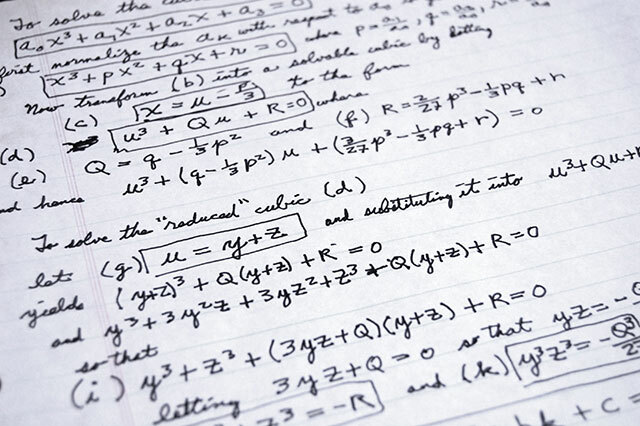 To solve the cubic
a₀x³ + a₁x² + a₂x + a₃ = 0
first normalize the aₖ with respect to a₀
x³ + px² + qx + r = 0 where p = a₁/a₀, q = a₂/a₀, r =
Now transform (b) into a solvable cubic by letting
(c) x = u - p/3 to the form
(d) u³ + Qu + R = 0 where
(e) Q = q - 1/3 p² and (f) R = 2/27 p³ - 1/3 pq + r
and hence u³ + (q - 1/3 p²) u + (2/27 p³ - 1/3 pq + r) = 0
To solve the "reduced" cubic (d)
let (g) u = y + z and substituting it into u³ + Qu +
yields (y+z)³ + Q(y+z) + R = 0
and y³ + 3y²z + 3yz² + z³ + Q(y+z) + R = 0
so that
(i) y³ + z³ + (3yz + Q)(y+z) + R = 0
letting 3yz + Q = 0 so that yz = -
z³ = -R and (k) y³z³ = -Q³/
+ C =